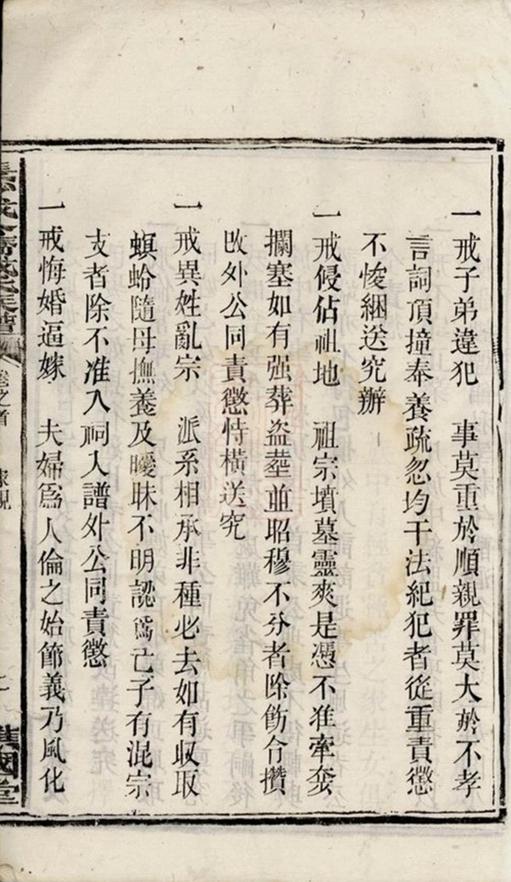 一戒子弟違犯　事莫重於順親罪莫大於不孝
言詞頂撞奉養疏忽均干法紀犯者從重責懲
不悛綑送究辦
一戒侵佔祖地　祖宗墳墓靈爽是憑不准牽奪
攔塞如有强葬盜塟並昭穆不分者除飭令攢
改外公同責懲恃橫送究
一戒異姓亂宗　派系相承非種必去如有収取
螟蛉隨母撫養及曖昧不明認爲亡子有混宗
支者除不准入祠入譜外公同責懲
一戒悔婚逼嫁　夫婦爲人倫之始節義乃風化
族譜
卷之首
家規
國堂